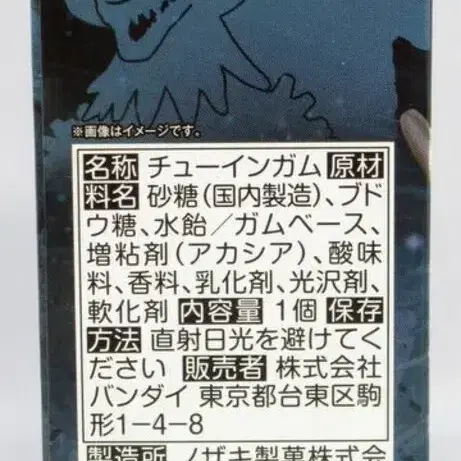 ※画像はイメージです。
名称 チューインガム 原材
料名 砂糖(国内製造)、ブド
ウ糖、水飴/ガムベース、
増粘剤(アカシア)、酸味
料、香料、乳化剤、光沢剤、
軟化剤 内容量 1個 保存
方法 直射日光を避けてく
ださい 販売者 株式会社
バンダイ 東京都台東区駒
形1-4-8
製造所 ノザキ製菓株式会